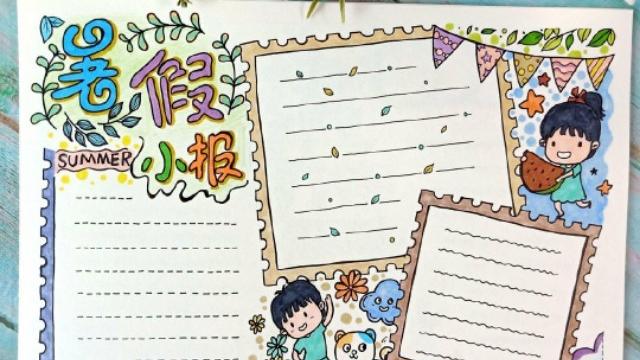 暑假
小报
SUMMER